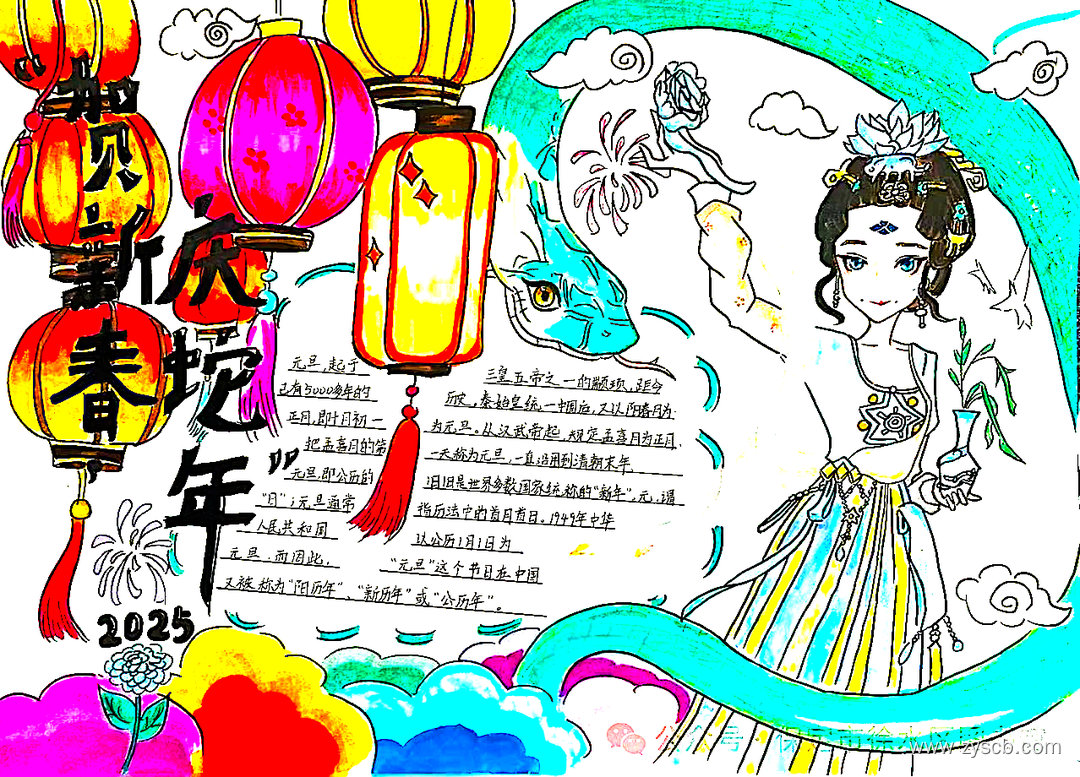 “贺新春
庆蛇年”
2025
元旦，起于 三皇五帝之一的颛顼，距今
已有5000多年的 历史。秦始皇统一中国后，又以阳春月为
正月，即十月初一 为元旦。从汉武帝起，规定孟喜月为正月，
把孟喜月的第 一天称为元旦，一直沿用到清朝末年。
元旦，即公历的 1月1日是世界多数国家统称的“新年”。元，谓
“日”；元旦通常 指历法中的首月首日。1949年中华
人民共和国 以公历1月1日为
元旦，而因此， “元旦”这个节日在中国
又被称为“阳历年”、“新历年”或“公历年”。
公众号
www.zyscb.com